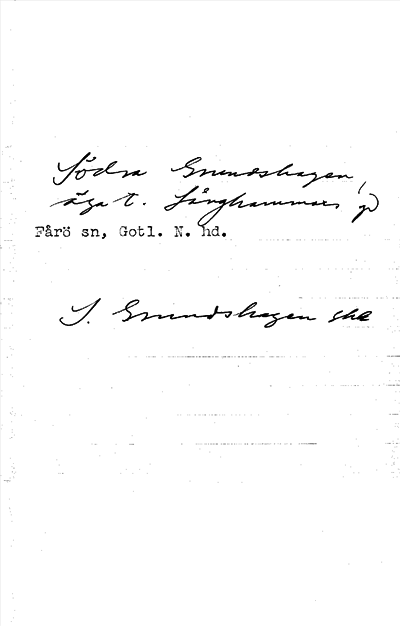 Södra Grundshagen,
äga t. Långhammars gd
Fårö sn, Gotl. N. hd.
S. Grundshagen ska